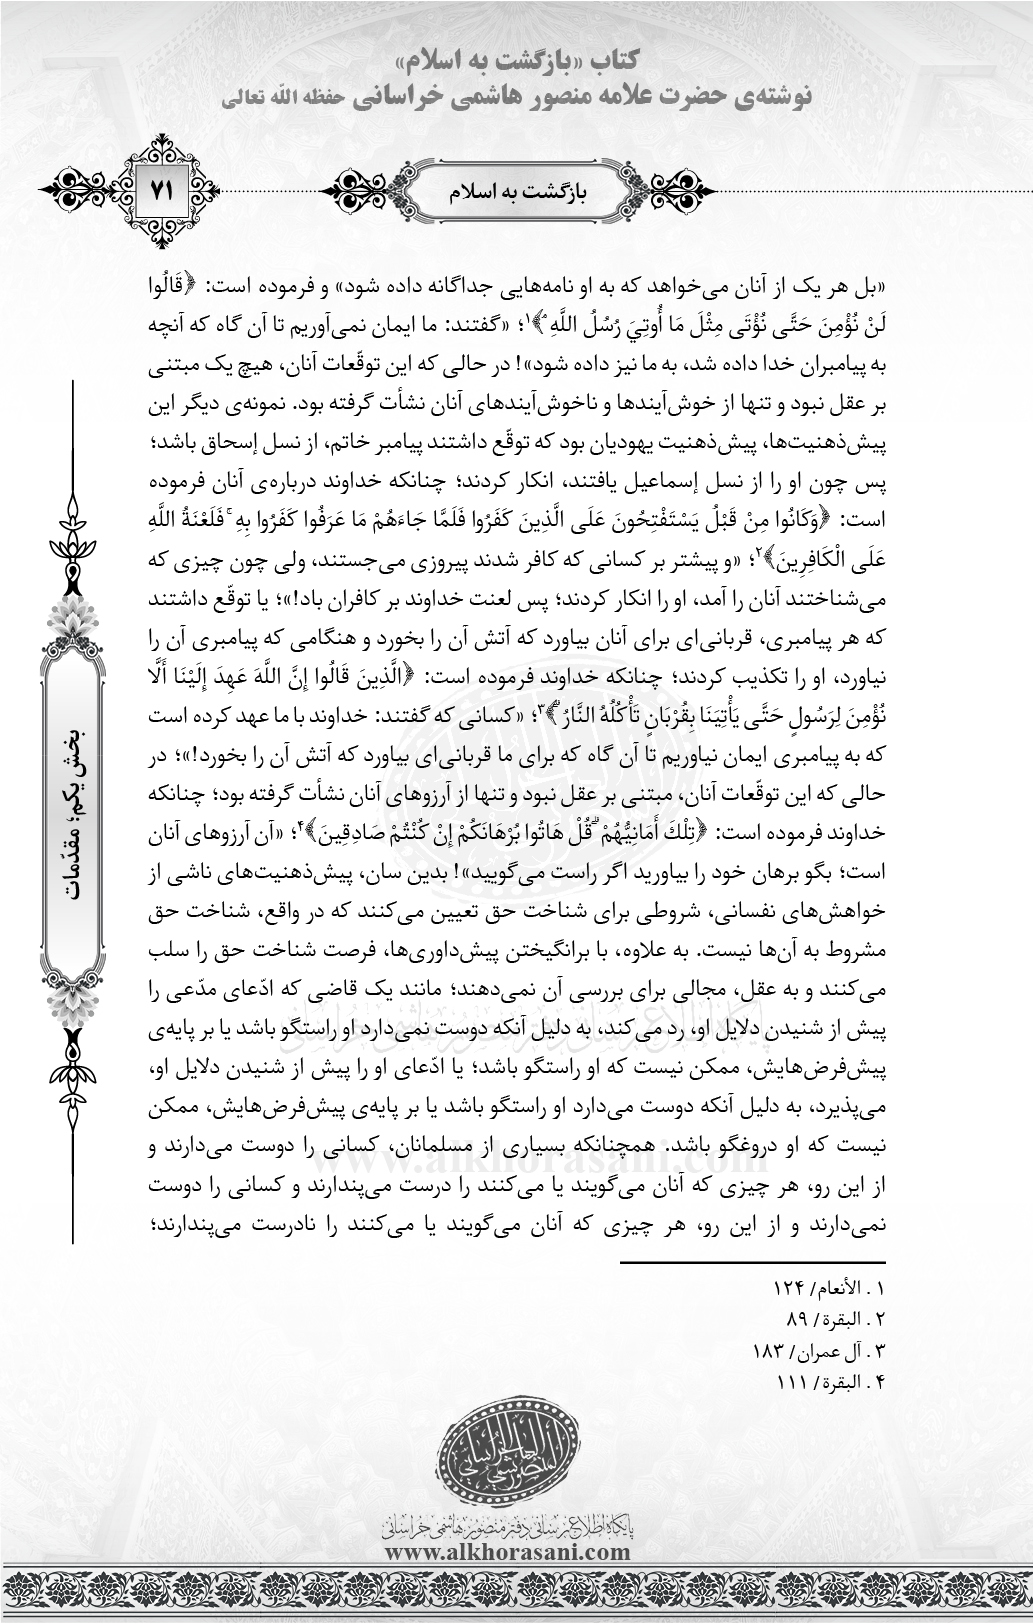 کتاب «بازگشت به اسلام»
نوشته‌ی حضرت علامه منصور هاشمی خراسانی حفظه الله تعالی
بازگشت به اسلام
۷۱
«بل هر یک از آنان می‌خواهد که به او نامه‌هایی جداگانه داده شود» و فرموده است: ﴿قَالُوا
لَنْ نُؤْمِنَ حَتَّى نُؤْتَى مِثْلَ مَا أُوتِيَ رُسُلُ اللَّهِ ۘ﴾۱؛ «گفتند: ما ایمان نمی‌آوریم تا آن گاه که آنچه
به پیامبران خدا داده شد، به ما نیز داده شود»! در حالی که این توقّعات آنان، هیچ یک مبتنی
بر عقل نبود و تنها از خوش‌آیندها و ناخوش‌آیندهای آنان نشأت گرفته بود. نمونه‌ی دیگر این
پیش‌ذهنیت‌ها، پیش‌ذهنیت یهودیان بود که توقّع داشتند پیامبر خاتم، از نسل إسحاق باشد؛
پس چون او را از نسل إسماعیل یافتند، انکار کردند؛ چنانکه خداوند درباره‌ی آنان فرموده
است: ﴿وَكَانُوا مِنْ قَبْلُ يَسْتَفْتِحُونَ عَلَى الَّذِينَ كَفَرُوا فَلَمَّا جَاءَهُمْ مَا عَرَفُوا كَفَرُوا بِهِ ۚ فَلَعْنَةُ اللَّهِ
عَلَى الْكَافِرِينَ﴾۲؛ «و پیشتر بر کسانی که کافر شدند پیروزی می‌جستند، ولی چون چیزی که
می‌شناختند آنان را آمد، او را انکار کردند؛ پس لعنت خداوند بر کافران باد!»؛ یا توقّع داشتند
که هر پیامبری، قربانی‌ای برای آنان بیاورد که آتش آن را بخورد و هنگامی که پیامبری آن را
نیاورد، او را تکذیب کردند؛ چنانکه خداوند فرموده است: ﴿الَّذِينَ قَالُوا إِنَّ اللَّهَ عَهِدَ إِلَيْنَا أَلَّا
نُؤْمِنَ لِرَسُولٍ حَتَّى يَأْتِيَنَا بِقُرْبَانٍ تَأْكُلُهُ النَّارُ ۗ﴾۳؛ «کسانی که گفتند: خداوند با ما عهد کرده است
که به پیامبری ایمان نیاوریم تا آن گاه که برای ما قربانی‌ای بیاورد که آتش آن را بخورد!»؛ در
حالی که این توقّعات آنان، مبتنی بر عقل نبود و تنها از آرزوهای آنان نشأت گرفته بود؛ چنانکه
خداوند فرموده است: ﴿تِلْكَ أَمَانِيُّهُمْ ۗ قُلْ هَاتُوا بُرْهَانَكُمْ إِنْ كُنْتُمْ صَادِقِينَ﴾۴؛ «آن آرزوهای آنان
است؛ بگو برهان خود را بیاورید اگر راست می‌گویید»! بدین سان، پیش‌ذهنیت‌های ناشی از
خواهش‌های نفسانی، شروطی برای شناخت حق تعیین می‌کنند که در واقع، شناخت حق
مشروط به آن‌ها نیست. به علاوه، با برانگیختن پیش‌داوری‌ها، فرصت شناخت حق را سلب
می‌کنند و به عقل، مجالی برای بررسی آن نمی‌دهند؛ مانند یک قاضی که ادّعای مدّعی را
پیش از شنیدن دلایل او، رد می‌کند، به دلیل آنکه دوست نمی‌دارد او راستگو باشد یا بر پایه‌ی
پیش‌فرض‌هایش، ممکن نیست که او راستگو باشد؛ یا ادّعای او را پیش از شنیدن دلایل او،
می‌پذیرد، به دلیل آنکه دوست می‌دارد او راستگو باشد یا بر پایه‌ی پیش‌فرض‌هایش، ممکن
نیست که او دروغگو باشد. همچنانکه بسیاری از مسلمانان، کسانی را دوست می‌دارند و
از این رو، هر چیزی که آنان می‌گویند یا می‌کنند را درست می‌پندارند و کسانی را دوست
نمی‌دارند و از این رو، هر چیزی که آنان می‌گویند یا می‌کنند را نادرست می‌پندارند؛
بخش یکم؛ مقدّمات
۱ . الأنعام/ ۱۲۴
۲ . البقرة/ ۸۹
۳ . آل عمران/ ۱۸۳
۴ . البقرة/ ۱۱۱
پایگاه اطلاع رسانی دفتر منصور هاشمی خراسانی
www.alkhorasani.com